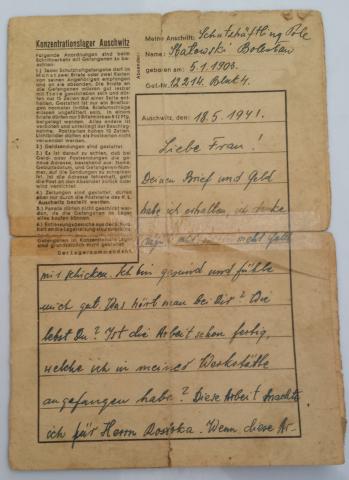 Konzentrationslager Auschwitz
Folgende Anordnungen sind beim
Schriftverkehr mit Gefangenen zu
beachten:
1.) Jeder Schutzhaftgefangene darf im
Monat zwei Briefe oder zwei Karten
von seinen Angehörigen empfangen
und an sie absenden. Die Briefe an
die Gefangenen müssen gut lesbar
mit Tinte geschrieben sein und dür-
fen nur 15 Zeilen auf einer Seite ent-
halten. Gestattet ist nur ein Briefbo-
gen normaler Größe. Briefumschläge
müssen ungefüttert sein. In einem
Briefe dürfen nur 5 Briefmarken à 12 Pfg.
beigelegt werden. Alles andere ist
verboten und unterliegt der Beschlag-
nahme. Postkarten haben 10 Zeilen.
Lichtbilder dürfen als Postkarten nicht
verwendet werden.
2.) Geldsendungen sind gestattet.
3.) Es ist darauf zu achten, daß bei
Geld- oder Postsendungen die ge-
naue Adresse, bestehend aus Name,
Geburtsdatum, und Gefangenen-Num-
mer, auf die Sendungen zu schreiben
ist. Ist die Adresse fehlerhaft, geht
die Post an den Absender zurück oder
wird vernichtet.
4.) Zeitungen sind gestattet, dürfen
aber nur durch die Poststelle des K. L.
Auschwitz bestellt werden.
5.) Pakete dürfen nicht geschickt wer-
den, da die Gefangenen im Lager
alles kaufen können.
6.) Entlassungsgesuche aus der Schutz-
haft an die Lagerleitung sind zwecklos.
Gefangenen im Konzentrations-Lager
sind grundsätzlich nicht gestattet.
Der Lagerkommandant.
Absender:
Meine Anschrift: Schutzhäftling Pole
Name: Boleslaw
geboren am: 5.1.1903.
Gef.-Nr. 12214. Block 4.
Auschwitz, den 18.5.1941.
Liebe Frau!
Deinen Brief und Geld
habe ich erhalten
nicht Geld
mir schicken. Ich bin gesund und fühle
mich gut. Was hört man bei Dir? Wie
lebst Du? Ist die Arbeit schon fertig,
welche ich in meiner Werkstätte
angefangen habe? Diese Arbeit machte
ich für Herrn Wenn diese Ar-